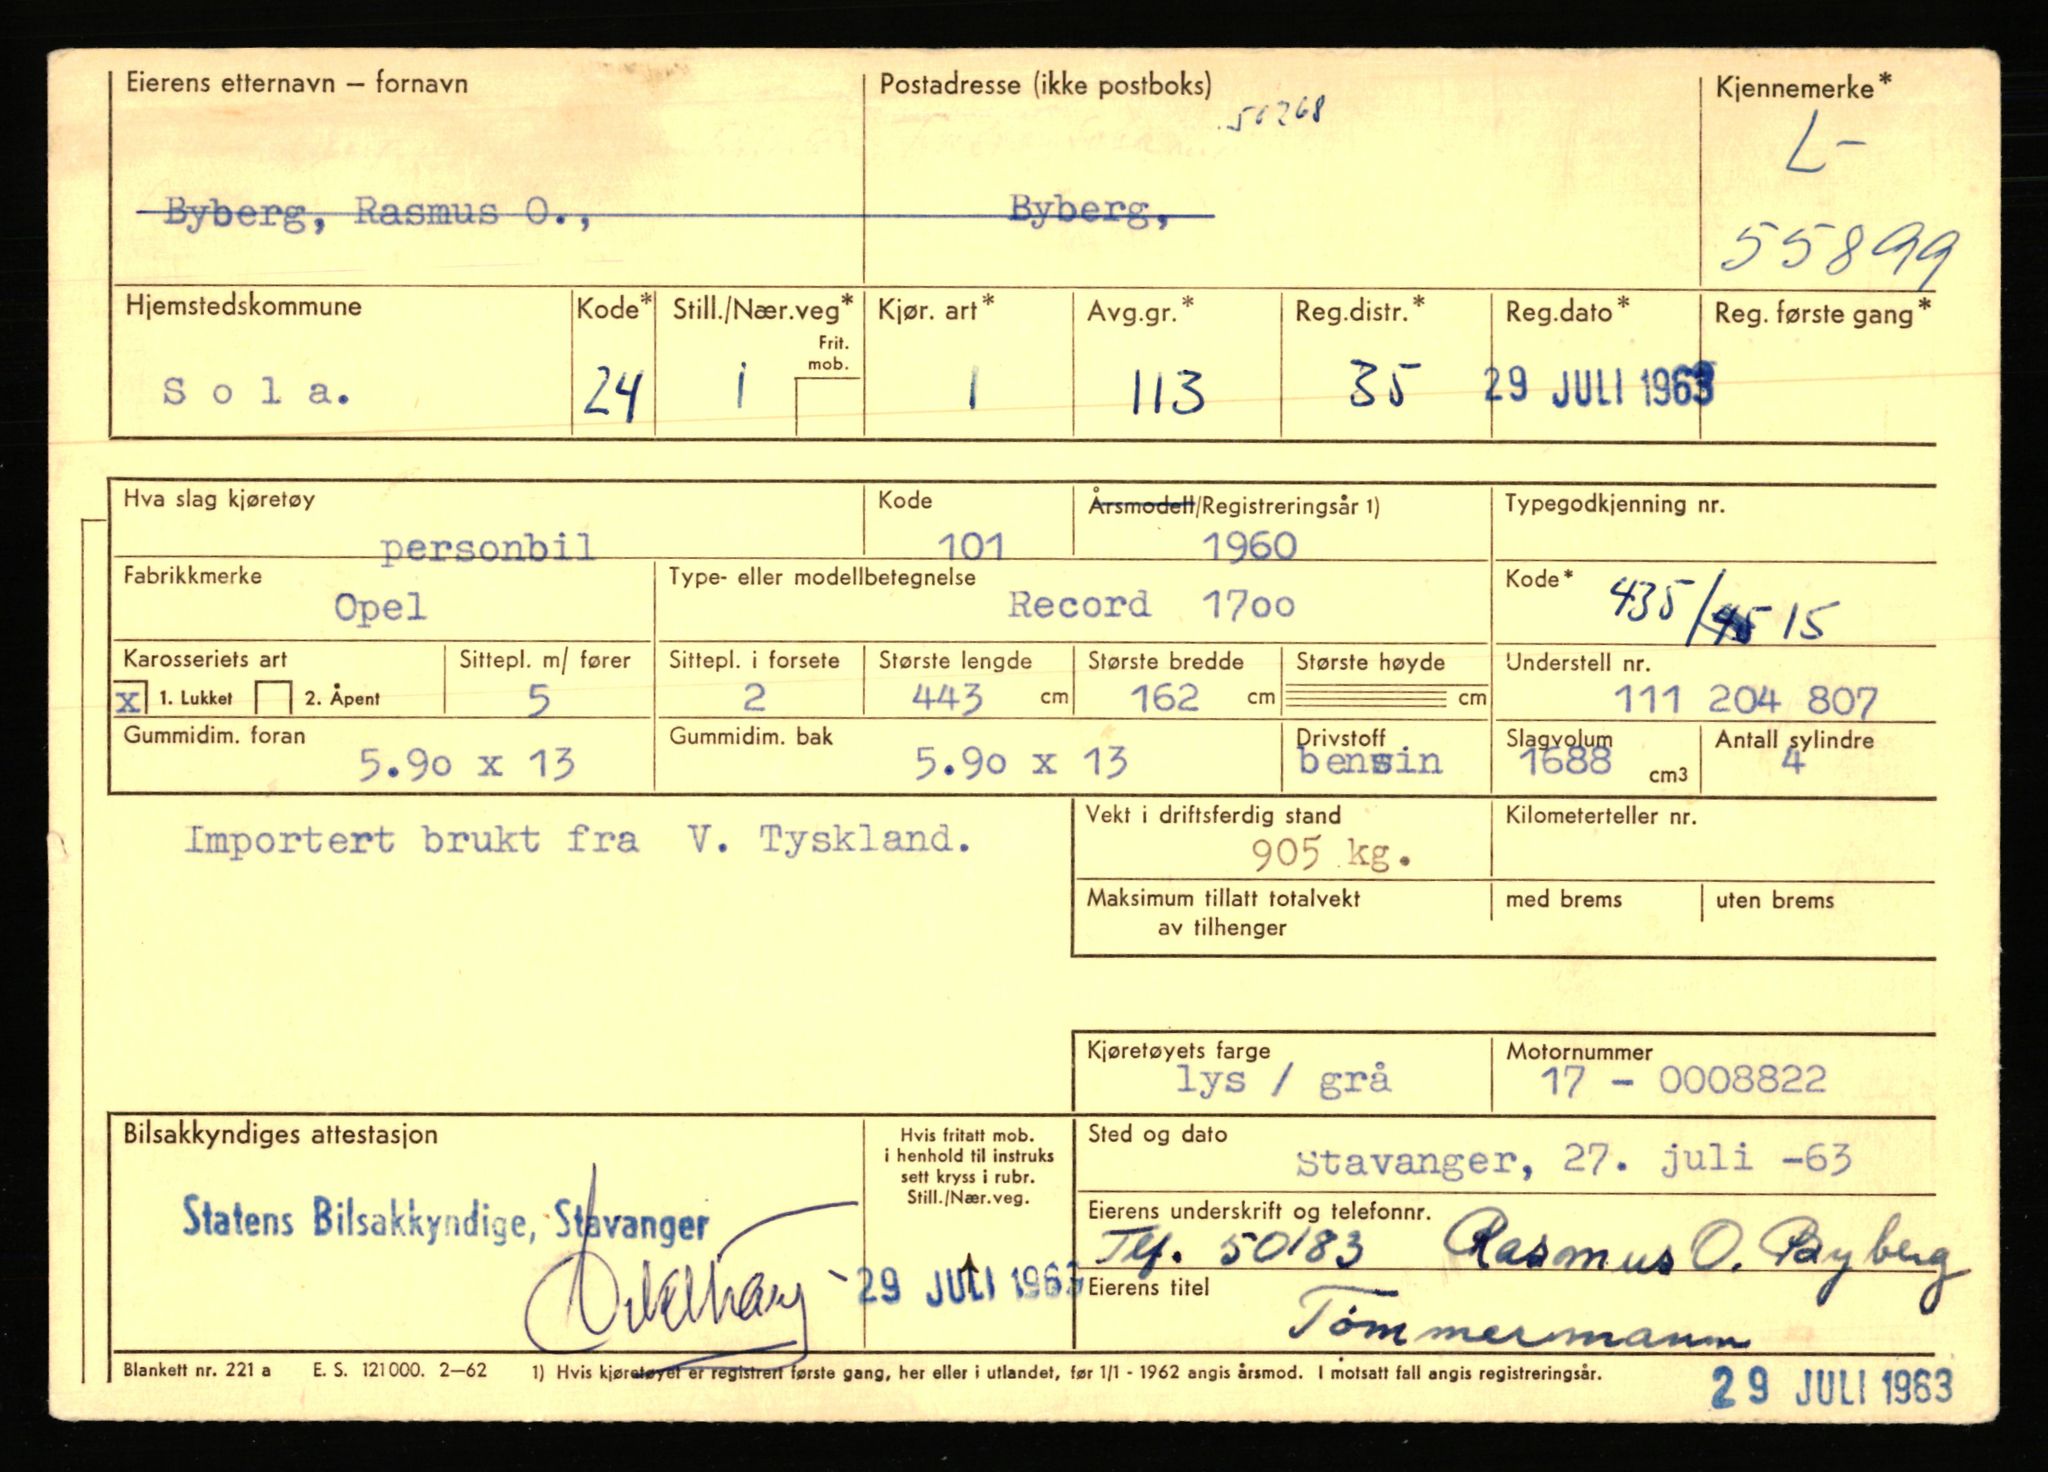 Eierens etternavn – fornavn Postadresse (ikke postboks) Kjennemerke*
50268
L-
Byberg, Rasmus O., Byberg,
55899
Hjemstedskommune Kode* Still./Nær.veg* Kjør. art* Avg.gr.* Reg.distr.* Reg.dato* Reg. første gang*
Frit.
mob.
Sola. 24 1 1 113 35 29 JULI 1963
Hva slag kjøretøy Kode Årsmodell/Registreringsår 1) Typegodkjenning nr.
personbil 101 1960
Fabrikkmerke Type- eller modellbetegnelse Kode*
Opel Record 1700 435/45 15
Karosseriets art Sittepl. m/ fører Sittepl. i forsete Største lengde Største bredde Største høyde Understell nr.
x 1. Lukket 2. Åpent 5 2 443 cm 162 cm cm 111 204 807
Gummidim. foran Gummidim. bak Drivstoff Slagvolum Antall sylindre
5.90 x 13 5.90 x 13 bensin 1688 cm3 4
Vekt i driftsferdig stand Kilometerteller nr.
Importert brukt fra V. Tyskland.
905 kg.
Maksimum tillatt totalvekt med brems uten brems
av tilhenger
Kjøretøyets farge Motornummer
lys / grå 17 - 0008822
Bilsakkyndiges attestasjon Hvis fritatt mob. Sted og dato
i henhold til instruks
sett kryss i rubr.
Still./Nær.veg.
Stavanger, 27. juli -63
Statens Bilsakkyndige, Stavanger
Eierens underskrift og telefonnr.
Tlf. 50183 Rasmus O. Byberg
29 JULI 1963
Eierens titel
Tömmermann
Blankett nr. 221 a E. S. 121000. 2–62 1) Hvis kjøretøyet er registrert første gang, her eller i utlandet, før 1/1 - 1962 angis årsmod. I motsatt fall angis registreringsår.
29 JULI 1963